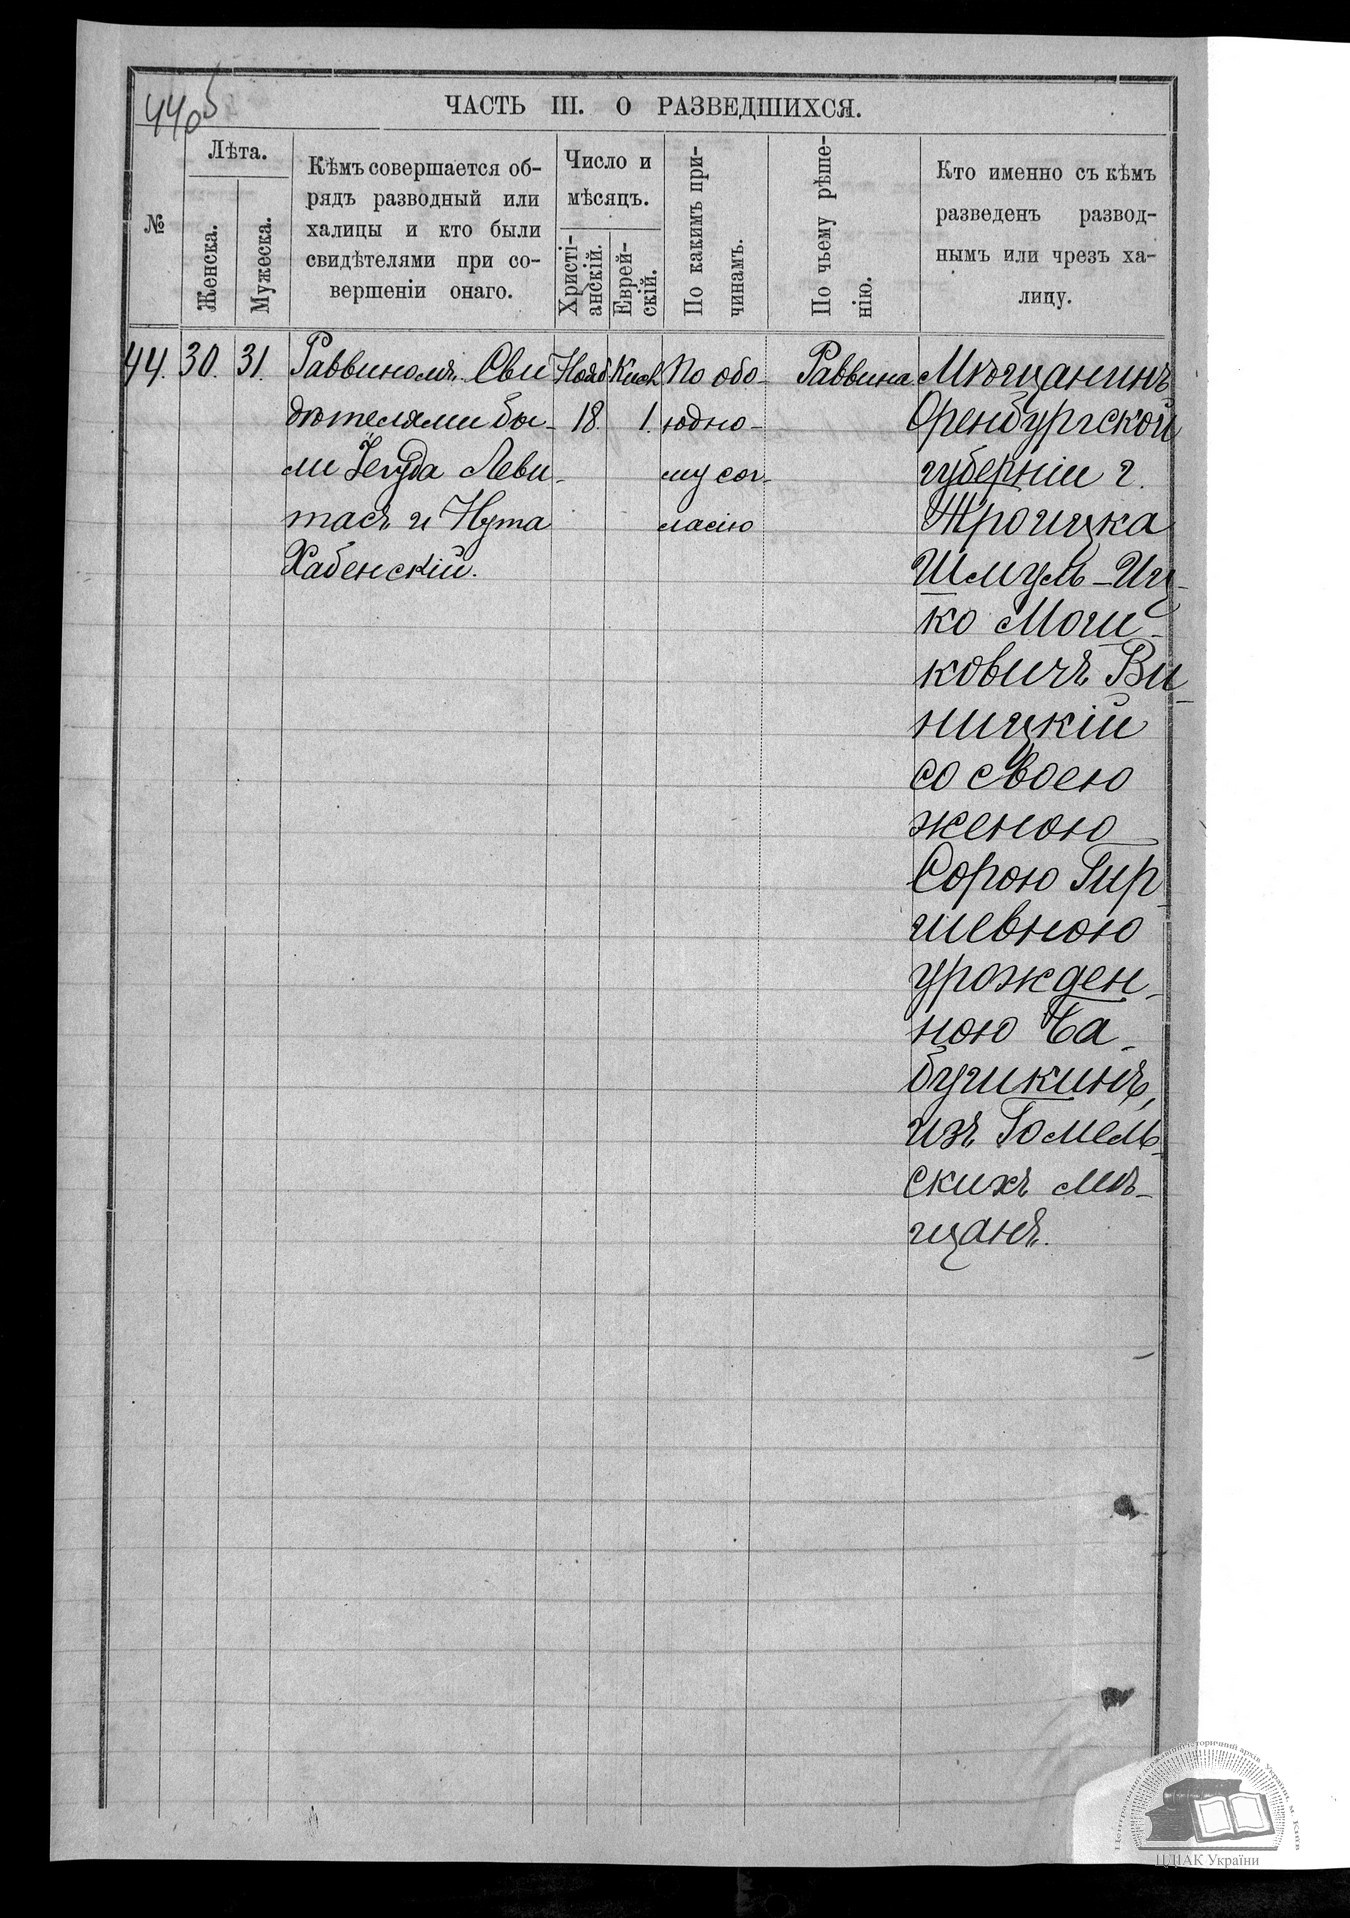 440б
ЧАСТЬ III. О РАЗВЕДШИХСЯ.
№
Лѣта.
Женска.
Мужеска.
Кѣмъ совершается об-
рядъ разводный или
халицы и кто были
свидѣтелями при со-
вершеніи онаго.
Число и
мѣсяцъ.
Христі-
анскій.
Еврей-
скій.
По какимъ при-
чинамъ.
По чьему рѣше-
нію.
Кто именно съ кѣмъ
разведенъ развод-
нымъ или чрезъ ха-
лицу.
44.
30.
31.
Раввиномъ. Сви
дѣтелями бы-
ли Іегуда Леви-
тасъ и Нута
Хабенскій.
Нояб
18.
Кисл
1.
По обо-
юдно-
му сог-
ласію
Раввина
Мѣщанинъ
Оренбургской
губерніи г.
Троицка
Шмуль-Иц-
ко Мош-
ковичъ Ви-
ницкій
со своею
женою
Сорою Гир-
шевною
урожден-
ною Ба-
бушкинъ,
изъ Гомель-
скихъ мѣ-
щанъ.
Центральний державний історичний архів України, м. Київ
ЦДІАК України